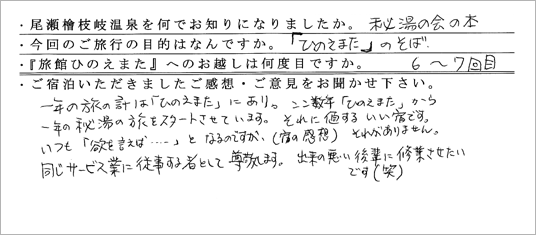 ・尾瀬檜枝岐温泉を何でお知りになりましたか。 秘湯の会の本
・今回のご旅行の目的はなんですか。「ひのえまた」のそば.
・『旅館ひのえまた』へのお越しは何度目ですか。 6〜7回目
・ご宿泊いただきましたご感想・ご意見をお聞かせ下さい。
一年の旅の計は「ひのえまた」にあり。ここ数年「ひのえまた」から
一年の秘湯の旅をスタートさせています。それに値するいい宿です。
いつも「欲を言えば……」となるのですが、(宿の感想) それがありません。
同じサービス業に従事する者として尊敬します。出来の悪い後輩に修業させたい
です(笑)